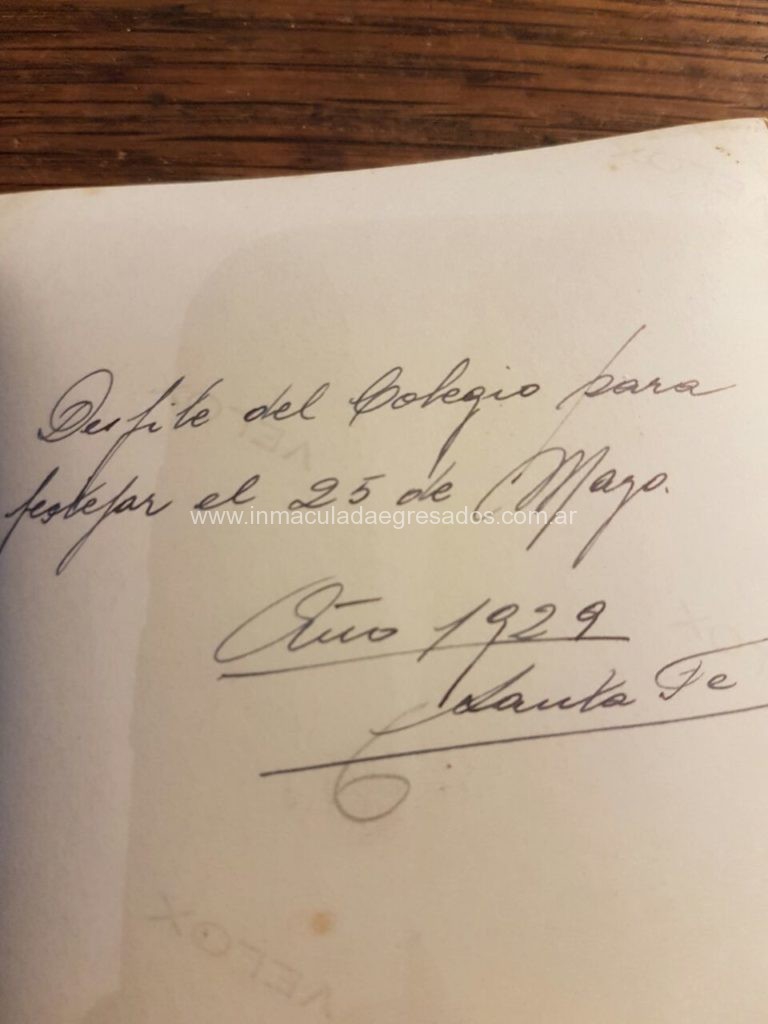 Desfile del Colegio para
festejar el 25 de Mayo.
www.inmaculadaegresados.com.ar
Año 1929
Santa Fe
6
VEFOX